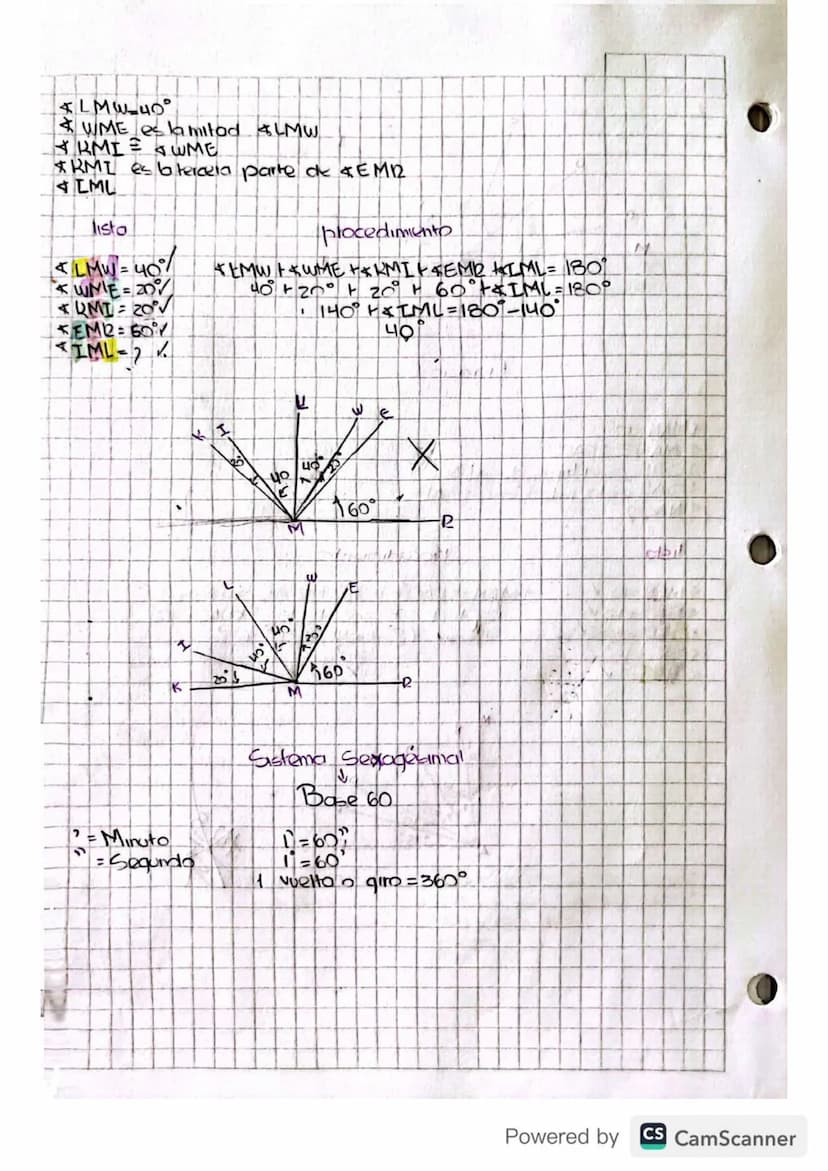 ∢LMW=40°
∢ WME es la mitad ∢LMW
∢ KMI ≅ ∢WME
∢KMI es la tercera parte de ∢EMR
∢ IML
listo
procedimiento
∢LMW = 40°✓
∢LMW+∢WME+∢KMI+∢EMR+∢IML= 180°
∢WME = 20°✓
40° + 20° + 20° + 60°+∢IML=180°
∢KMI = 20°✓
140° +∢IML=180°-140°
∢EMR = 60°✓
40°
∢IML=?
L
W
E
K
I
20°
40
40°
20°
X
60°
M
R
L
W
E
40°
20°
I
40°
60°
K
20°
M
R
Sistema Sexagésimal
↓
Base 60
' = Minuto
1'=60"
" = Segundo
1°=60'
1 vuelta o giro=360°
Powered by CS CamScanner